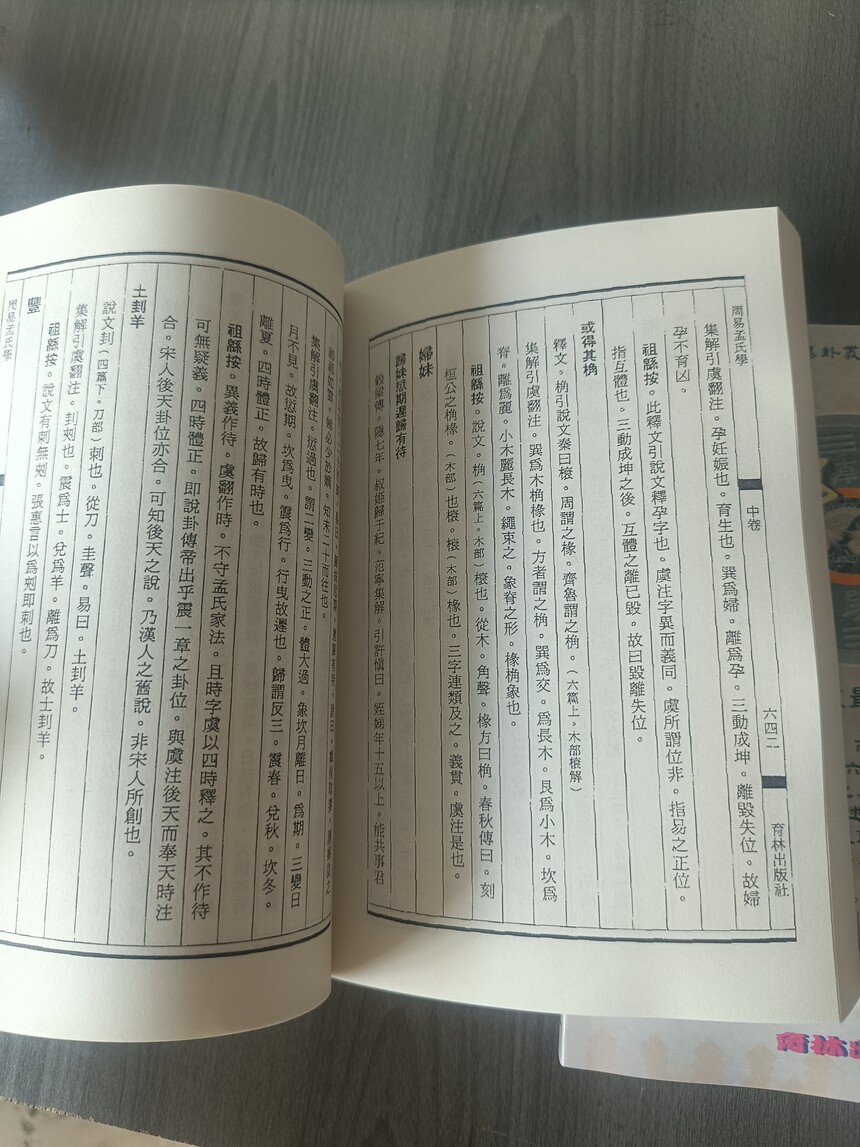 周易孟氏學
中卷
六四二
育林出版社
集解引虞翻注。孕妊娠也。育生也。巽爲婦。離爲孕。三動成坤。離毀失位。故婦
孕不育凶。
祖緜按。此釋文引說文釋孕字也。虞注字異而義同。虞所謂位非。指易之正位。
指互體也。三動成坤之後。互體之離已毀。故曰毀離失位。
或得其桷
釋文。桷引說文秦曰榱。周謂之椽。齊魯謂之桷。(六篇上。木部榱解)
集解引虞翻注。巽爲木桷椽也。方者謂之桷。巽爲交。爲長木。艮爲小木。坎爲
脊。離爲麗。小木麗長木。繩束之。象脊之形。椽桷象也。
祖緜按。說文。桷(六篇上。木部)榱也。從木。角聲。椽方曰桷。春秋傳曰。刻
桓公之桷椽。(木部)也榱。榱(木部)椽也。三字連類及之。義貫。虞注是也。
歸妹
歸妹愆期遲歸有待
穀梁傳。隱七年。叔姬歸于紀。范寧集解。引許慎曰。姪娣年十五以上。能共事君
娣必少於嫡。知未二十而往也。
集解引虞翻注。愆過也。謂二變。三動之正。體大過。象坎月離日。爲期。三變日
月不見。故愆期。坎爲曳。震爲行。行曳故遲也。歸謂反三。震春。兌秋。坎冬。
離夏。四時體正。故歸有時也。
祖緜按。異義作待。虞翻作時。不守孟氏家法。且時字虞以四時釋之。其不作待
可無疑義。四時體正。即說卦傳帝出乎震一章之卦位。與虞注後天而奉天時注
合。宋人後天卦位亦合。可知後天之說。乃漢人之舊說。非宋人所創也。
士刲羊
說文刲(四篇下。刀部)刺也。從刀。圭聲。易曰。士刲羊。
集解引虞翻注。刲刾也。震爲士。兌爲羊。離爲刀。故士刲羊。
祖緜按。說文有刺無刾。張惠言以爲刾即刺也。
豐
周易孟氏學